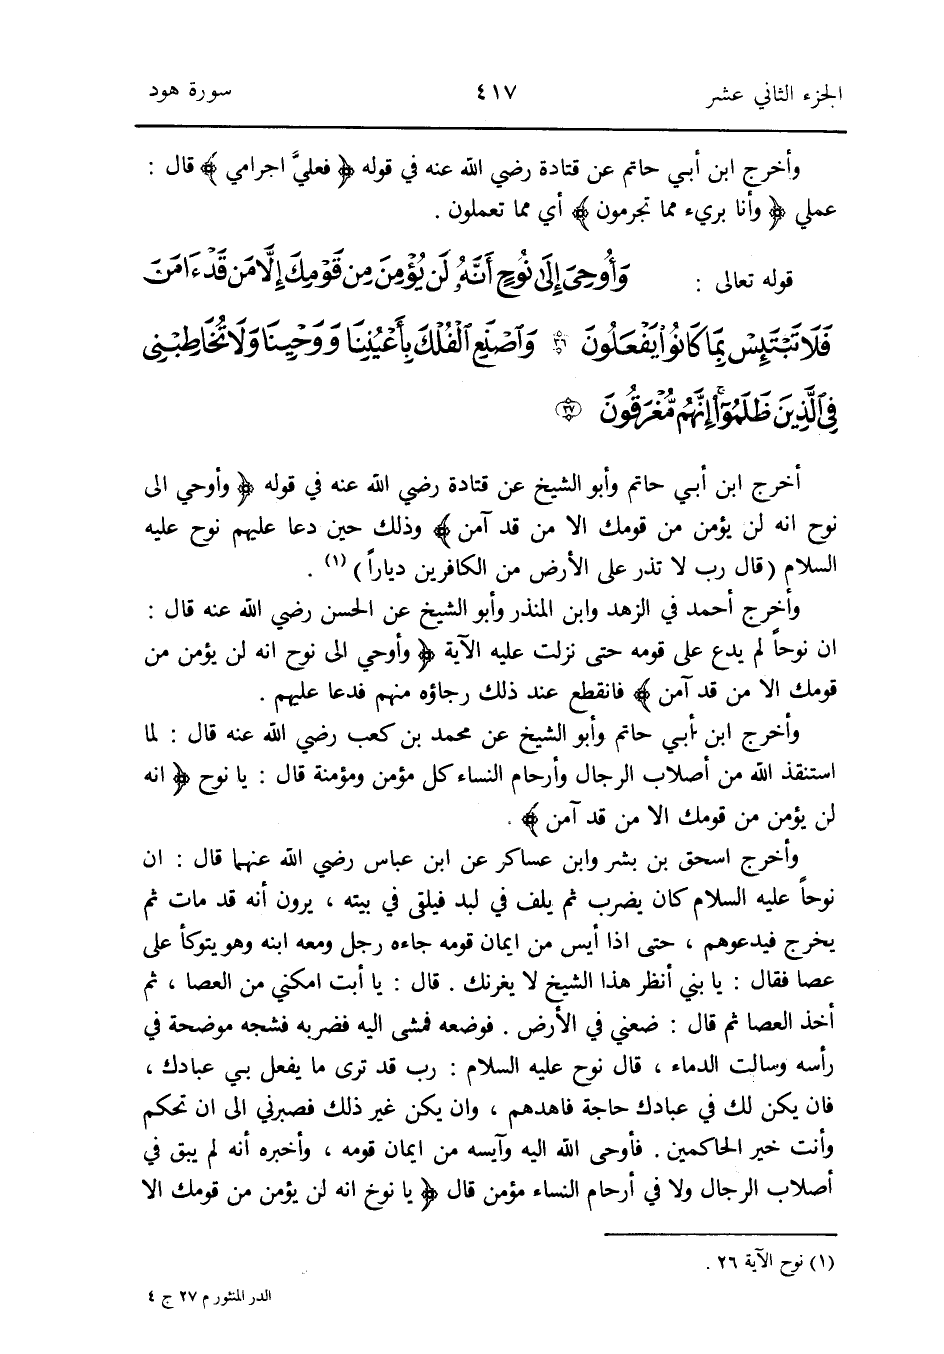 الجزء الثاني عشر ٤١٧ سورة هود
وأخرج ابن أبي حاتم عن قتادة رضي الله عنه في قوله ﴿ فعليَّ اجرامي ﴾ قال :
عملي ﴿ وأنا بريء مما تجرمون ﴾ أي مما تعملون .
قوله تعالى : وَأُوحِىَ إِلَىٰ نُوحٍ أَنَّهُۥ لَن يُؤْمِنَ مِن قَوْمِكَ إِلَّا مَن قَدْ ءَامَنَ
فَلَا تَبْتَئِسْ بِمَا كَانُوا۟ يَفْعَلُونَ ۝٣٦ وَٱصْنَعِ ٱلْفُلْكَ بِأَعْيُنِنَا وَوَحْيِنَا وَلَا تُخَٰطِبْنِى
فِى ٱلَّذِينَ ظَلَمُوٓا۟ ۚ إِنَّهُم مُّغْرَقُونَ ۝٣٧
أخرج ابن أبي حاتم وأبو الشيخ عن قتادة رضي الله عنه في قوله ﴿ وأوحي الى
نوح انه لن يؤمن من قومك الا من قد آمن ﴾ وذلك حين دعا عليهم نوح عليه
السلام ( قال رب لا تذر على الأرض من الكافرين دياراً ) (١) .
وأخرج أحمد في الزهد وابن المنذر وأبو الشيخ عن الحسن رضي الله عنه قال :
ان نوحاً لم يدع على قومه حتى نزلت عليه الآية ﴿ وأوحي الى نوح انه لن يؤمن من
قومك الا من قد آمن ﴾ فانقطع عند ذلك رجاؤه منهم فدعا عليهم .
وأخرج ابن أبي حاتم وأبو الشيخ عن محمد بن كعب رضي الله عنه قال : لما
استنقذ الله من أصلاب الرجال وأرحام النساء كل مؤمن ومؤمنة قال : يا نوح ﴿ انه
لن يؤمن من قومك الا من قد آمن ﴾ .
وأخرج اسحق بن بشر وابن عساكر عن ابن عباس رضي الله عنهما قال : ان
نوحاً عليه السلام كان يضرب ثم يلف في لبد فيلقى في بيته ، يرون أنه قد مات ثم
يخرج فيدعوهم ، حتى اذا أيس من ايمان قومه جاءه رجل ومعه ابنه وهو يتوكأ على
عصا فقال : يا بني أنظر هذا الشيخ لا يغرنك . قال : يا أبت امكني من العصا ، ثم
أخذ العصا ثم قال : ضعني في الأرض . فوضعه فمشى اليه فضربه فشجه موضحة في
رأسه وسالت الدماء ، قال نوح عليه السلام : رب قد ترى ما يفعل بي عبادك ،
فان يكن لك في عبادك حاجة فاهدهم ، وان يكن غير ذلك فصبرني الى ان تحكم
وأنت خير الحاكمين . فأوحى الله اليه وآيسه من ايمان قومه ، وأخبره أنه لم يبق في
أصلاب الرجال ولا في أرحام النساء مؤمن قال ﴿ يا نوخ انه لن يؤمن من قومك الا
(١) نوح الآية ٢٦ .
الدر المنثور م ٢٧ ج ٤